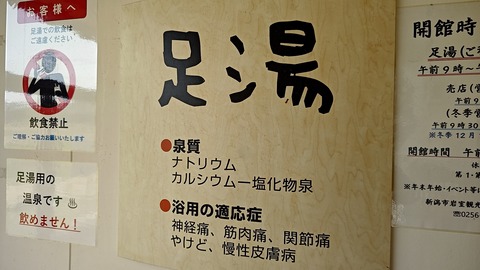 お客様へ
足湯での飲食は
ご遠慮ください
飲食禁止
ご理解・ご協力お願いいたします
足湯用の
温泉です♨
飲めません!
足湯
●泉質
ナトリウム
カルシウムー塩化物泉
●浴用の適応症
神経痛、筋肉痛、関節痛
やけど、慢性皮膚病
開館時
足湯(ご
午前9時~午
売店(
午前9
(冬季
午前9時30
※冬季12月
開館時間 午前
休
第1・第
※年末年始・イベント等に
新潟市岩室観光
☎0256